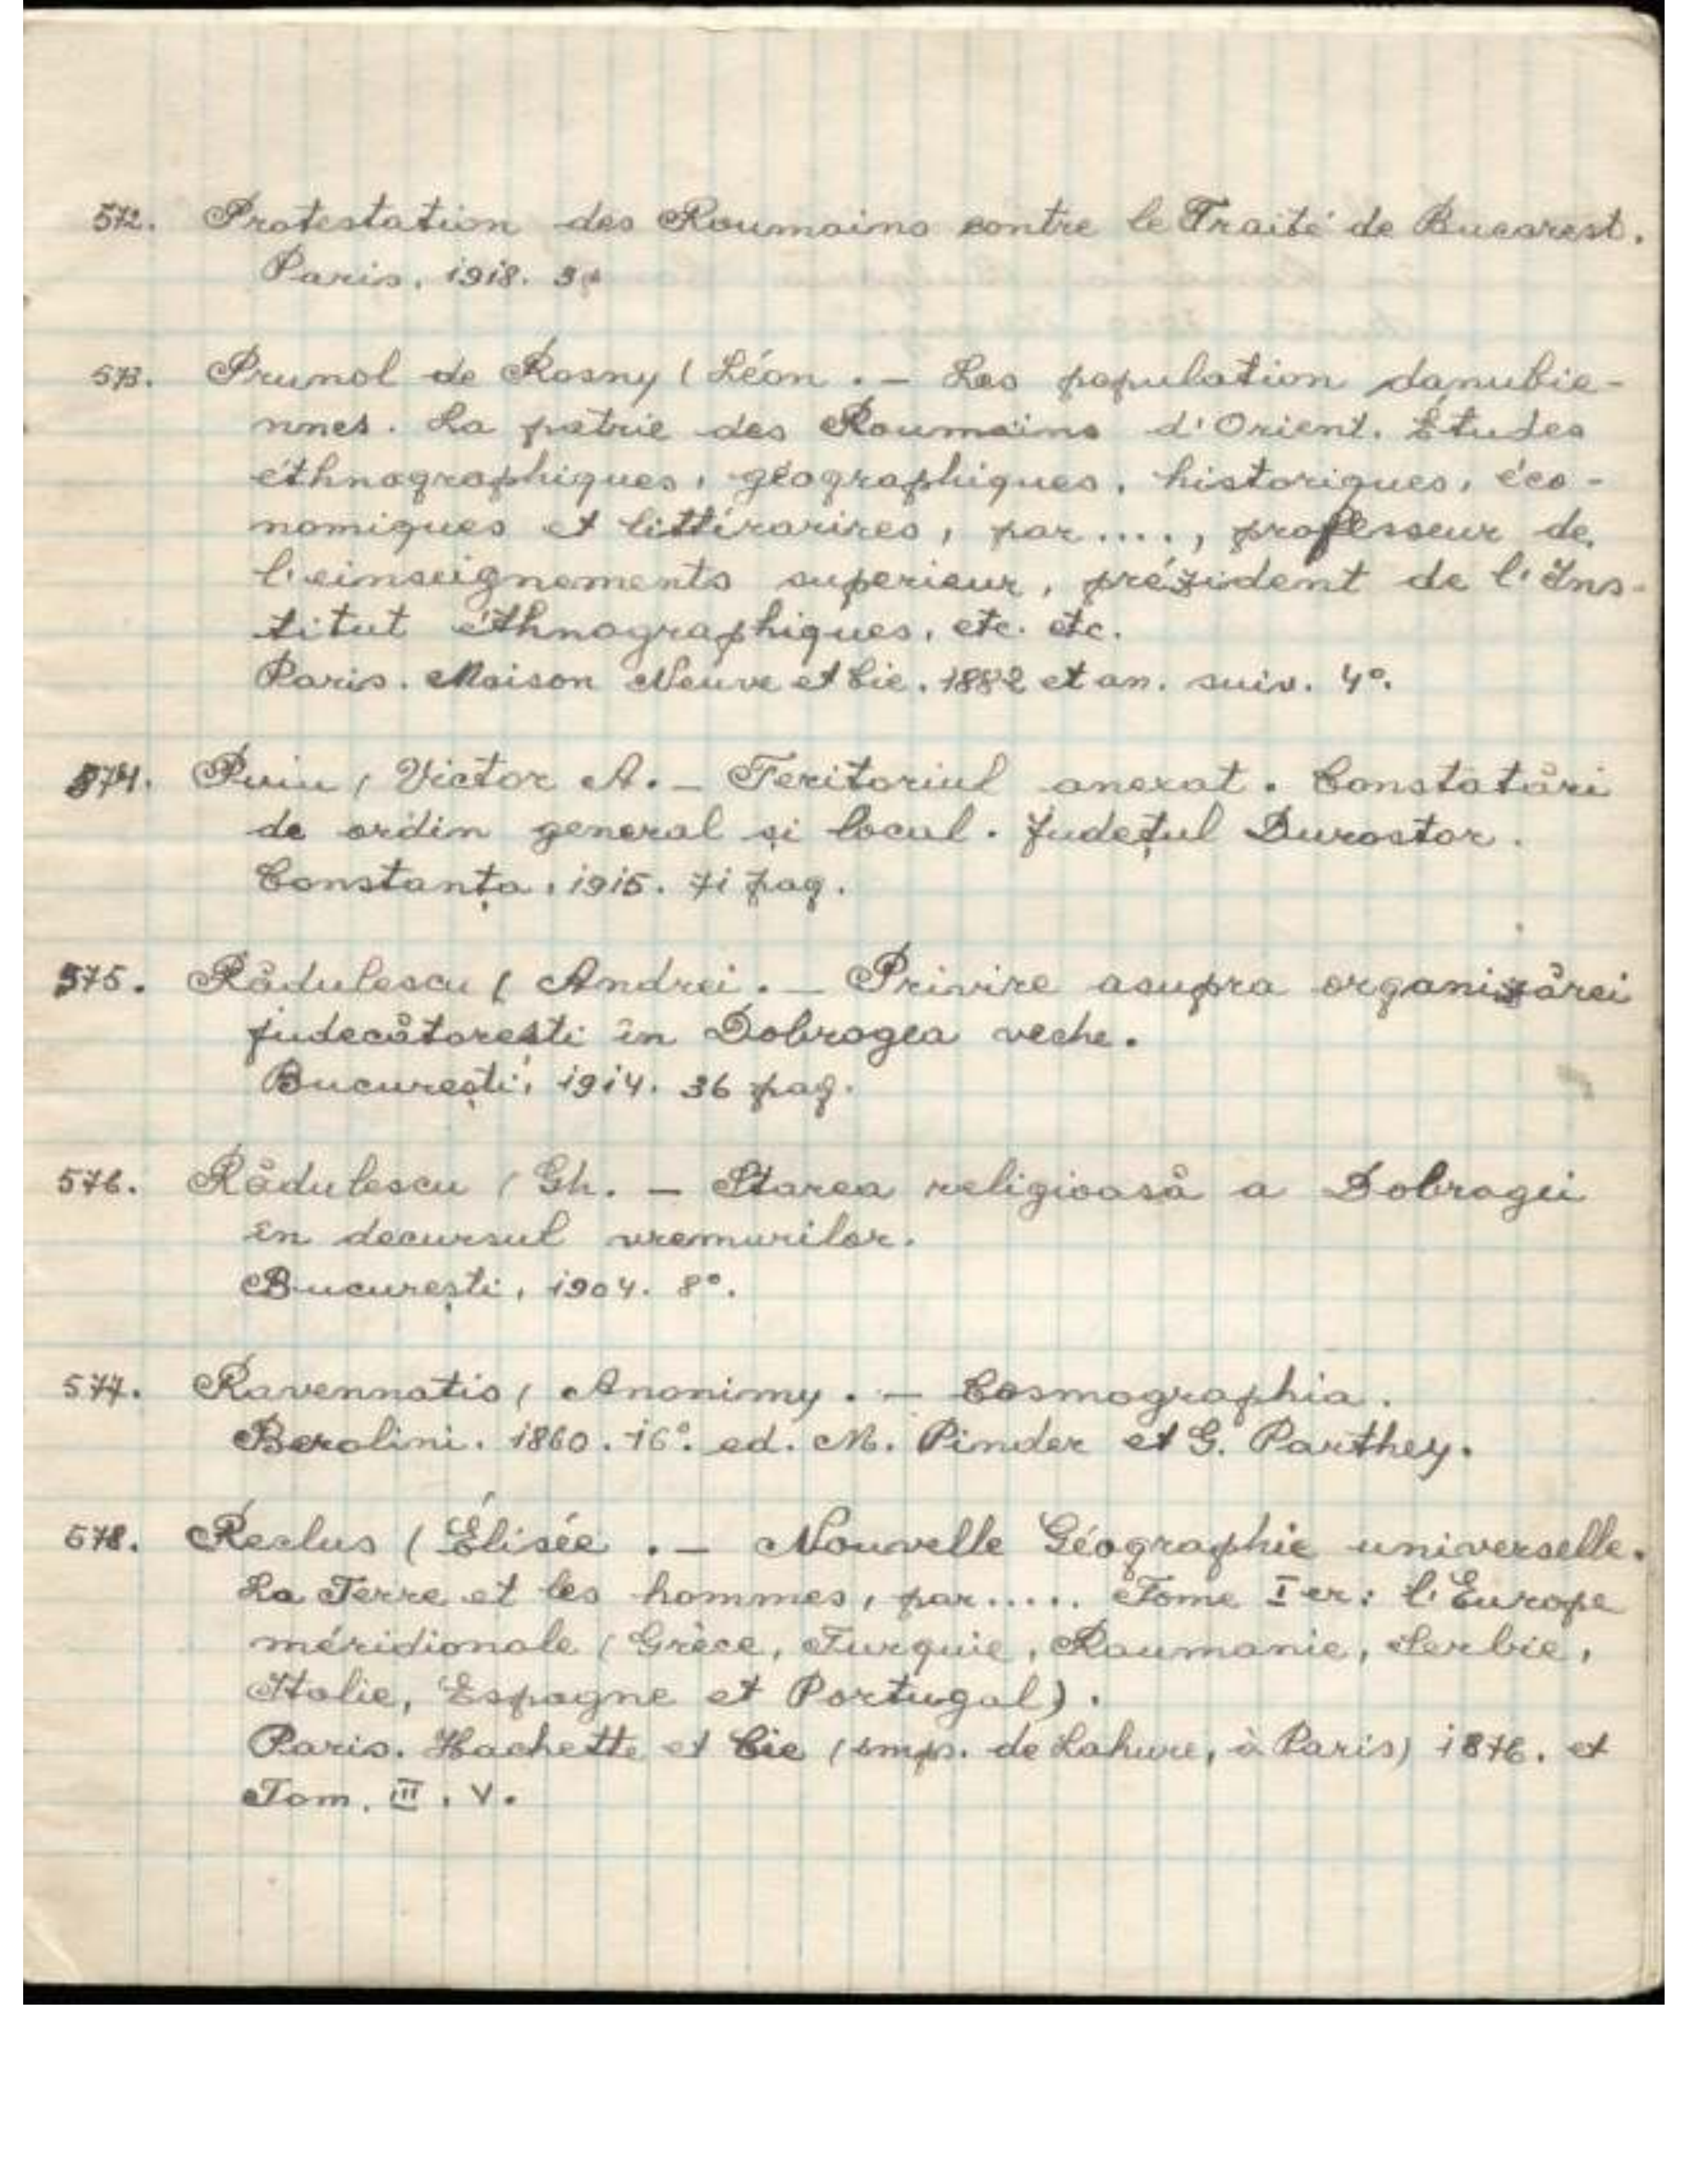 572. Protestation des Roumains contre le Traité de Bucarest.
Paris, 1918.
573. Prunol de Rosny (Léon. — Les population danubie-
nnes. La patrie des Roumains d'Orient. Études
éthnographiques, géographiques, historiques, éco-
nomiques et littérarires, par...., proflesseur de
l'einseignements superieur, prézident de l'Ins-
titut éthnographiques, etc. etc.
Paris. Maison Neuve et Cie. 1882 et an. suiv. 4°.
574. Puiu, Victor A. — Teritoriul anexat. Constatări
de ordin general și local. Județul Durostor.
Constanța, 1915. 71 pag.
575. Rădulescu (Andrei. — Privire asupra organizărei
judecătorești în Dobrogea veche.
București, 1914. 36 pag.
576. Rădulescu (Gh. — Starea religioasă a Dobrogei
în decursul vremurilor.
București, 1904. 8°.
577. Ravennatis, Anonimy. — Cosmographia.
Berolini. 1860. 16°. ed. M. Pinder et G. Parthey.
578. Reclus (Élisée. — Nouvelle Géographie universelle.
La Terre et les hommes, par..... Tome Ier: l'Europe
méridionale (Grèce, Turquie, Roumanie, Serbie,
Italie, Espagne et Portugal).
Paris. Hachette et Cie (imp. de Lahure, à Paris) 1876. et
Tom. III, V.